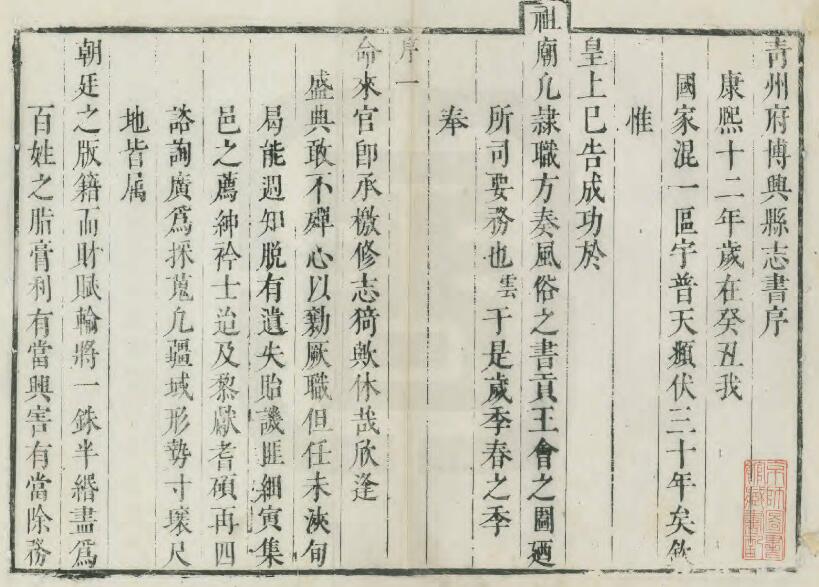 青州府博興縣志書序
康熙十二年歲在癸丑我
國家混一區宇普天頫伏三十年矣欽
惟
皇上已告成功於
祖廟凡隸職方奏風俗之書貢王會之圖廼
所司要務也雲于是歲季春之季
奉
序一
命來官卽承檄修志猗歟休哉欣逢
盛典敢不殫心以勷厥職但任未浹旬
局能週知脫有遺失貽譏匪細寅集
邑之薦紳衿士迨及黎獻耆碩再四
諮詢廣爲採蒐凡疆域形勢寸壤尺
地皆属
朝廷之版籍而財賦輸將一銖半緡盡爲
百姓之脂膏利有當興害有當除務
京師圖書
館藏書記